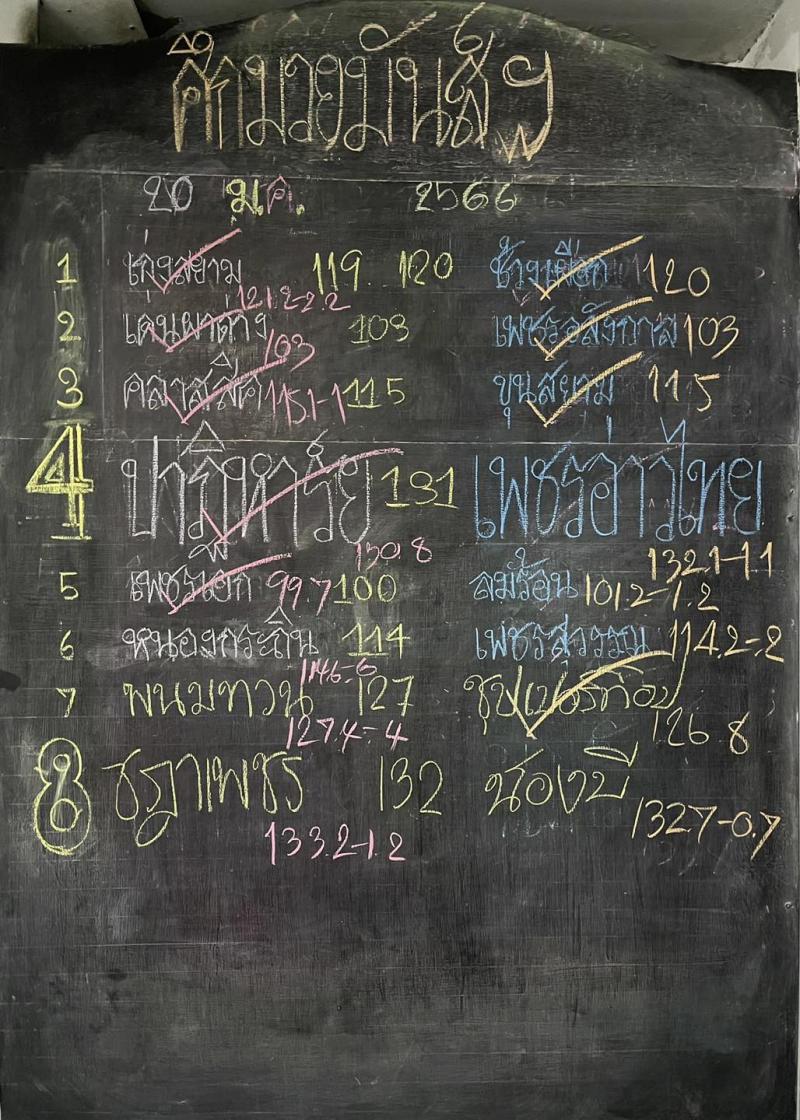 ศึกมวยมันส์ฯ
20 ม.ค. 2566
1 เก่งสยาม 119. 120 ช้างเผือก 120
121.2-2.2
2 เดนผาต่าง 103 เพชรอลังกาล 103
103
3 คลาสสิค 115.1-1 115 ขุนสยาม 115
4 ปาฏิหาริย์ 131 เพชรอ่าวไทย
130.8 132.1-1.1
5 เพชรเอก 99.7 100 ลมร้อน 101.2-1.2
6 หนองกระถิน 114 เพชรสุวรรณ 114.2-.2
114.6-.6
7 พนมทวน 127
127.4-.4 126.8
8 ชฎาเพชร 132 น้องบี
133.2-1.2 132.7-0.7